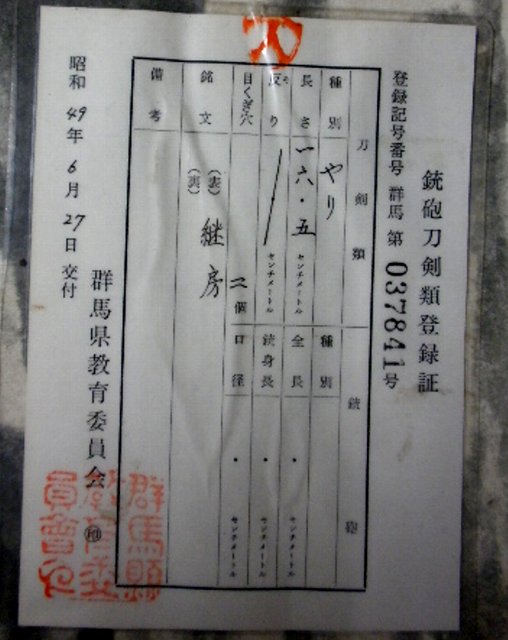 銃砲刀剣類登録証
登録記号番号 群馬 第 037841 号
刀剣類
銃砲
種別 やり
種別
長さ 一六・五 センチメートル
全長 ・ センチメートル
反り センチメートル
銃身長 ・ センチメートル
目くぎ穴 二個
口径 ・ センチメートル
銘文 (表) 継房
(裏)
備考
昭和 49年 6月 27日 交付
群馬県教育委員会 ㊞
群馬縣
教育委
員會之